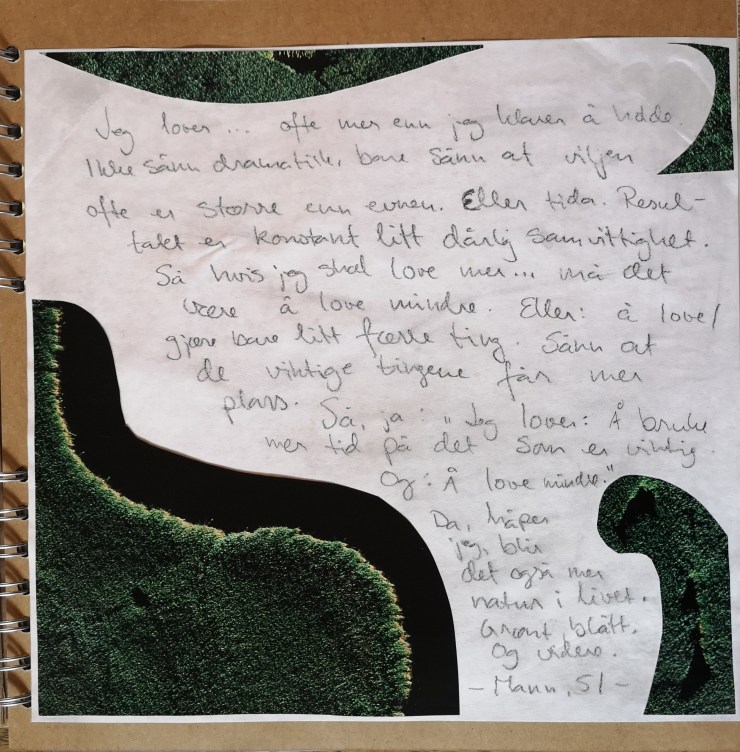 Jeg lover... ofte mer enn jeg klarer å holde.
Ikke sånn dramatisk, bare sånn at viljen
ofte er større enn evnen. Eller tida. Resul-
tatet er konstant litt dårlig samvittighet.
Så hvis jeg skal love mer... må det
være å love mindre. Eller: å love/
gjøre bare litt færre ting. Sånn at
de viktige tingene får mer
plass. Så, ja: "Jeg lover: Å bruke
mer tid på det som er viktig.
Og: Å love mindre."
Da, håper
jeg, blir
det også mer
natur i livet.
Grønt, blått.
Og videre.
- Mann, 51 -